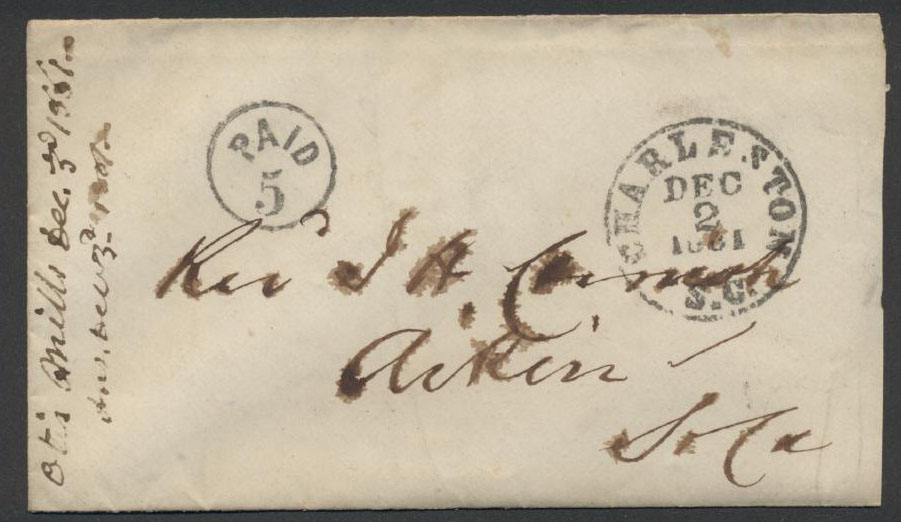 PAID
5
CHARLESTON
DEC
2
1861
S.C.
Revd J H Cornish
Aiken
So Ca
Otis Mills Dec. 3rd 1861.
Ans. Dec 3rd